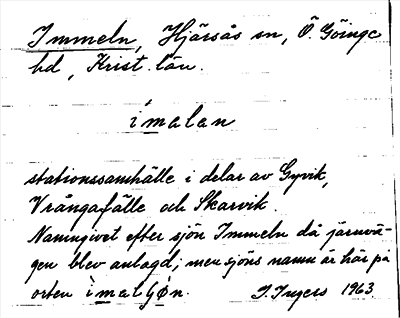 Immeln, Hjärsås sn, Ö. Göinge
hd, Krist. län.
ímelan
stationssamhälle i delar av Gyvik,
Vrångafälle och Skarvik.
Namngivet efter sjön Immeln då järnvä-
gen blev anlagd; men sjöns namn är här på
orten ìmelSjön. I. Ingers 1963